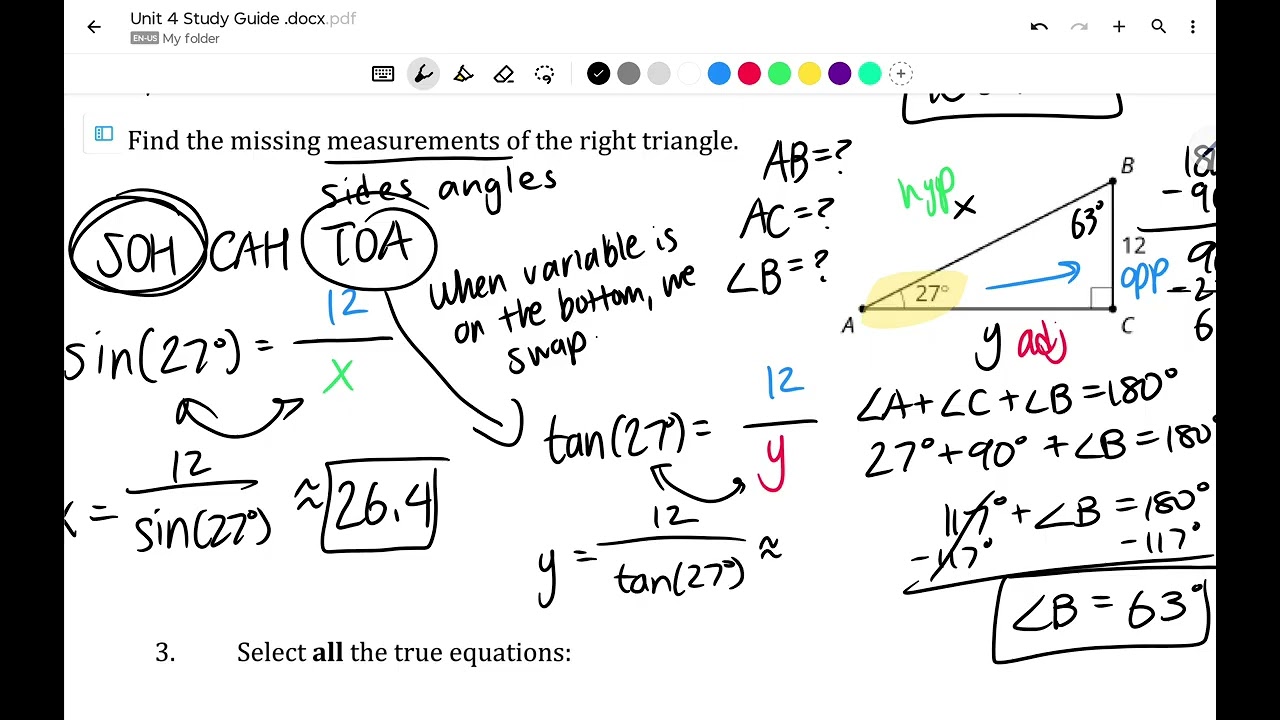 Unit 4 Study Guide .docx.pdf
EN-US My folder
Find the missing measurements of the right triangle.
sides angles
SOH CAH TOA
sin(27°) = 12/x
x = 12/sin(27°) ≈ 26.4
When variable is
on the bottom, we
swap.
tan(27°) = 12/y
y = 12/tan(27°) ≈
AB = ?
AC = ?
∠B = ?
hyp x
B
63°
12
opp
27°
A
C
y adj
∠A + ∠C + ∠B = 180°
27° + 90° + ∠B = 180°
117° + ∠B = 180°
-117° -117°
∠B = 63°
3. Select all the true equations: